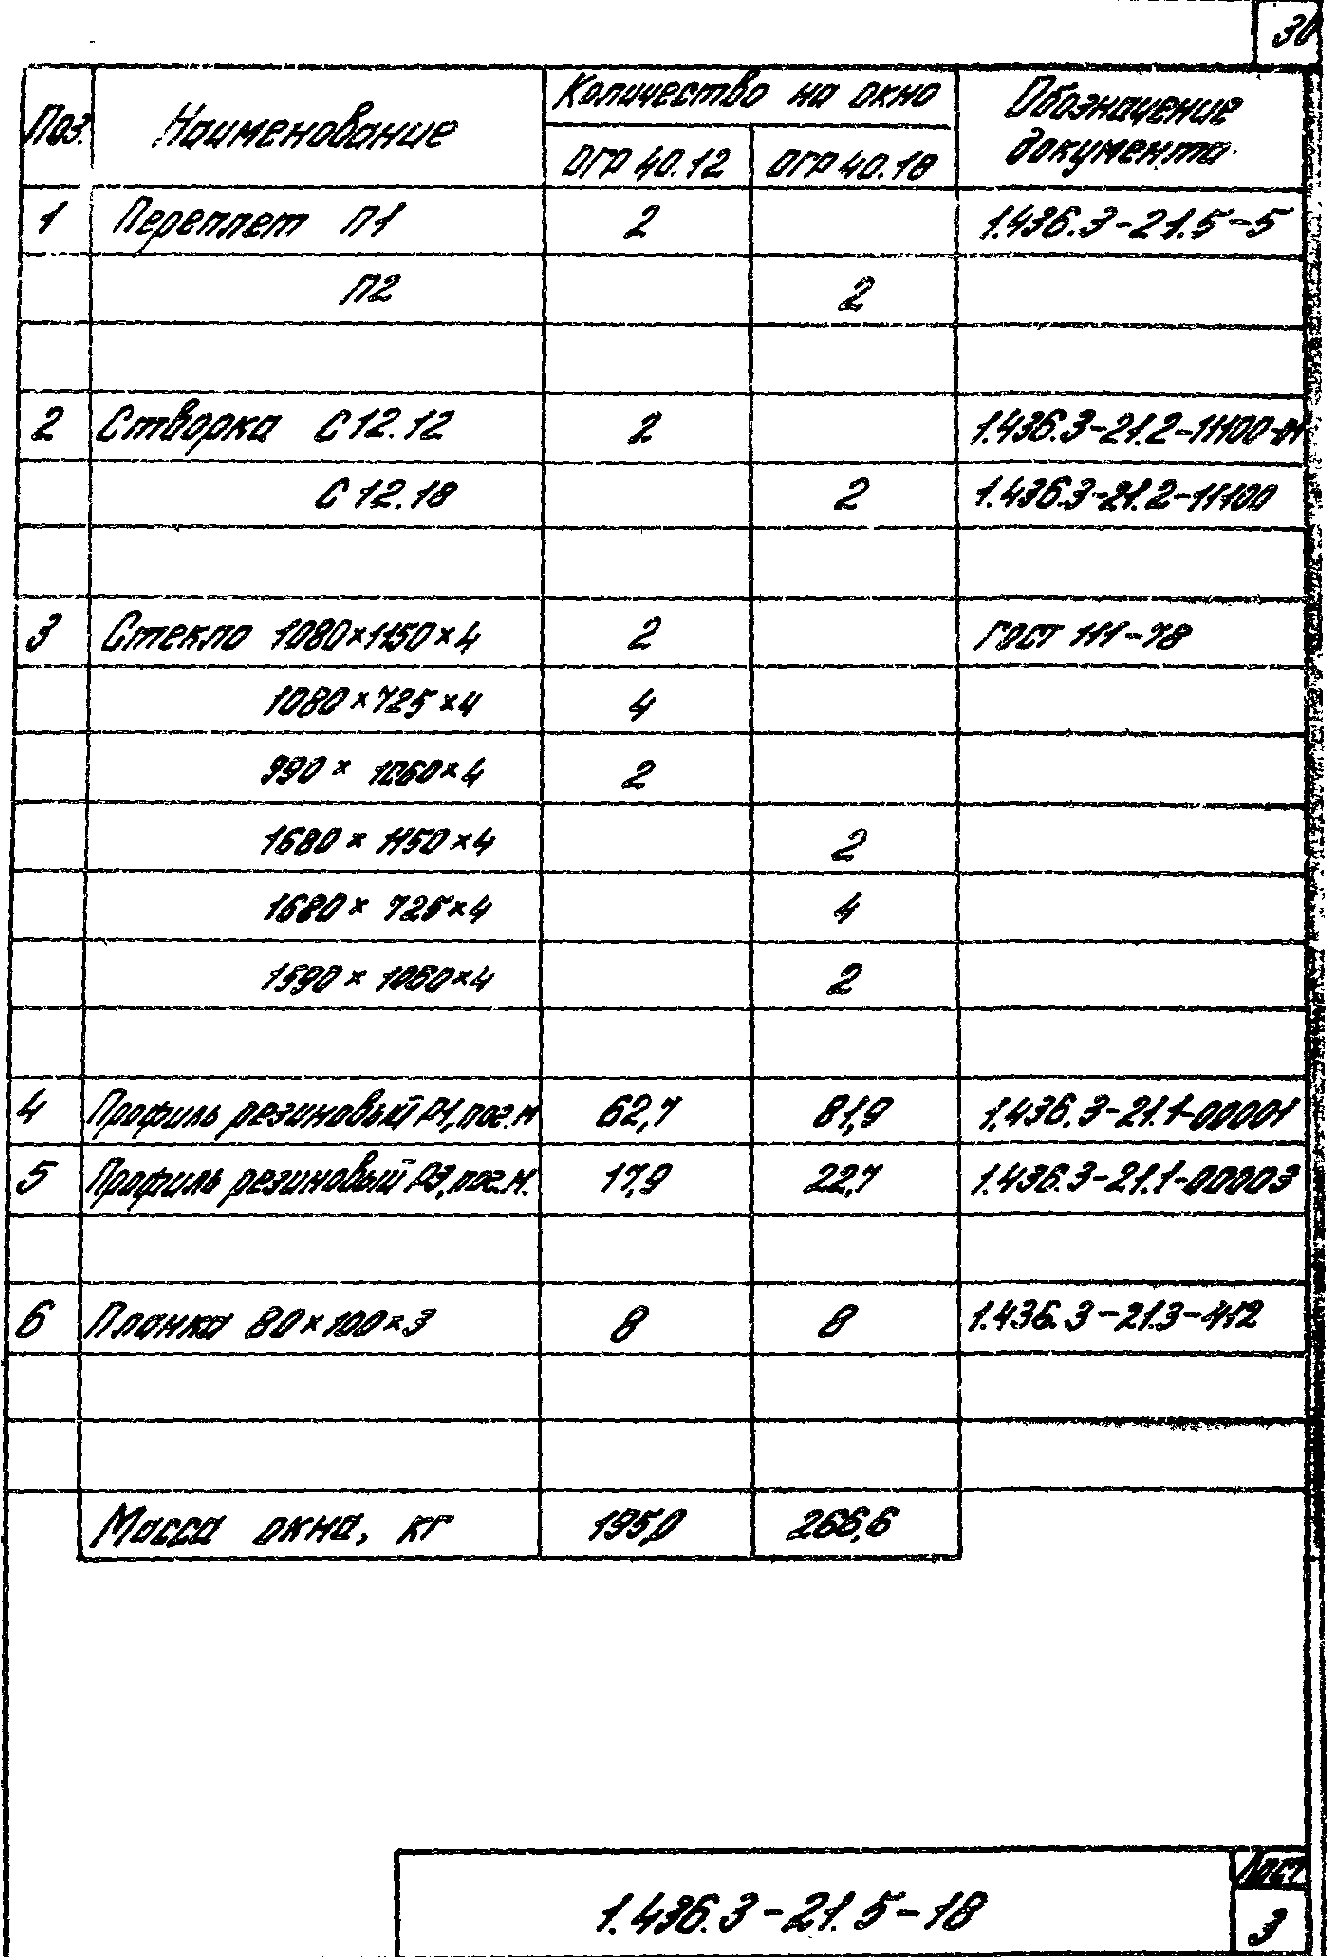 30
Поз. Наименование Количество на окно Обозначение документа
ОГР 40.12 ОГР 40.18
1 Переплет П1 2 1.436.3-21.5-5
П2 2
2 Створка С 12.12 2 1.436.3-21.2-11100-01
С 12.18 2 1.436.3-21.2-11100
3 Стекло 1080×1150×4 2 ГОСТ 111-78
1080×725×4 4
990×1060×4 2
1680×1150×4 2
1680×725×4 4
1590×1060×4 2
4 Профиль резиновый Р1, пог.м 62,7 81,9 1.436.3-21.1-00001
5 Профиль резиновый Р3, пог.м. 17,9 22,7 1.436.3-21.1-00003
6 Планка 80×100×3 8 8 1.436.3-21.3-412
Масса окна, кг 195,0 266,6
1.436.3-21.5-18
Лист
3